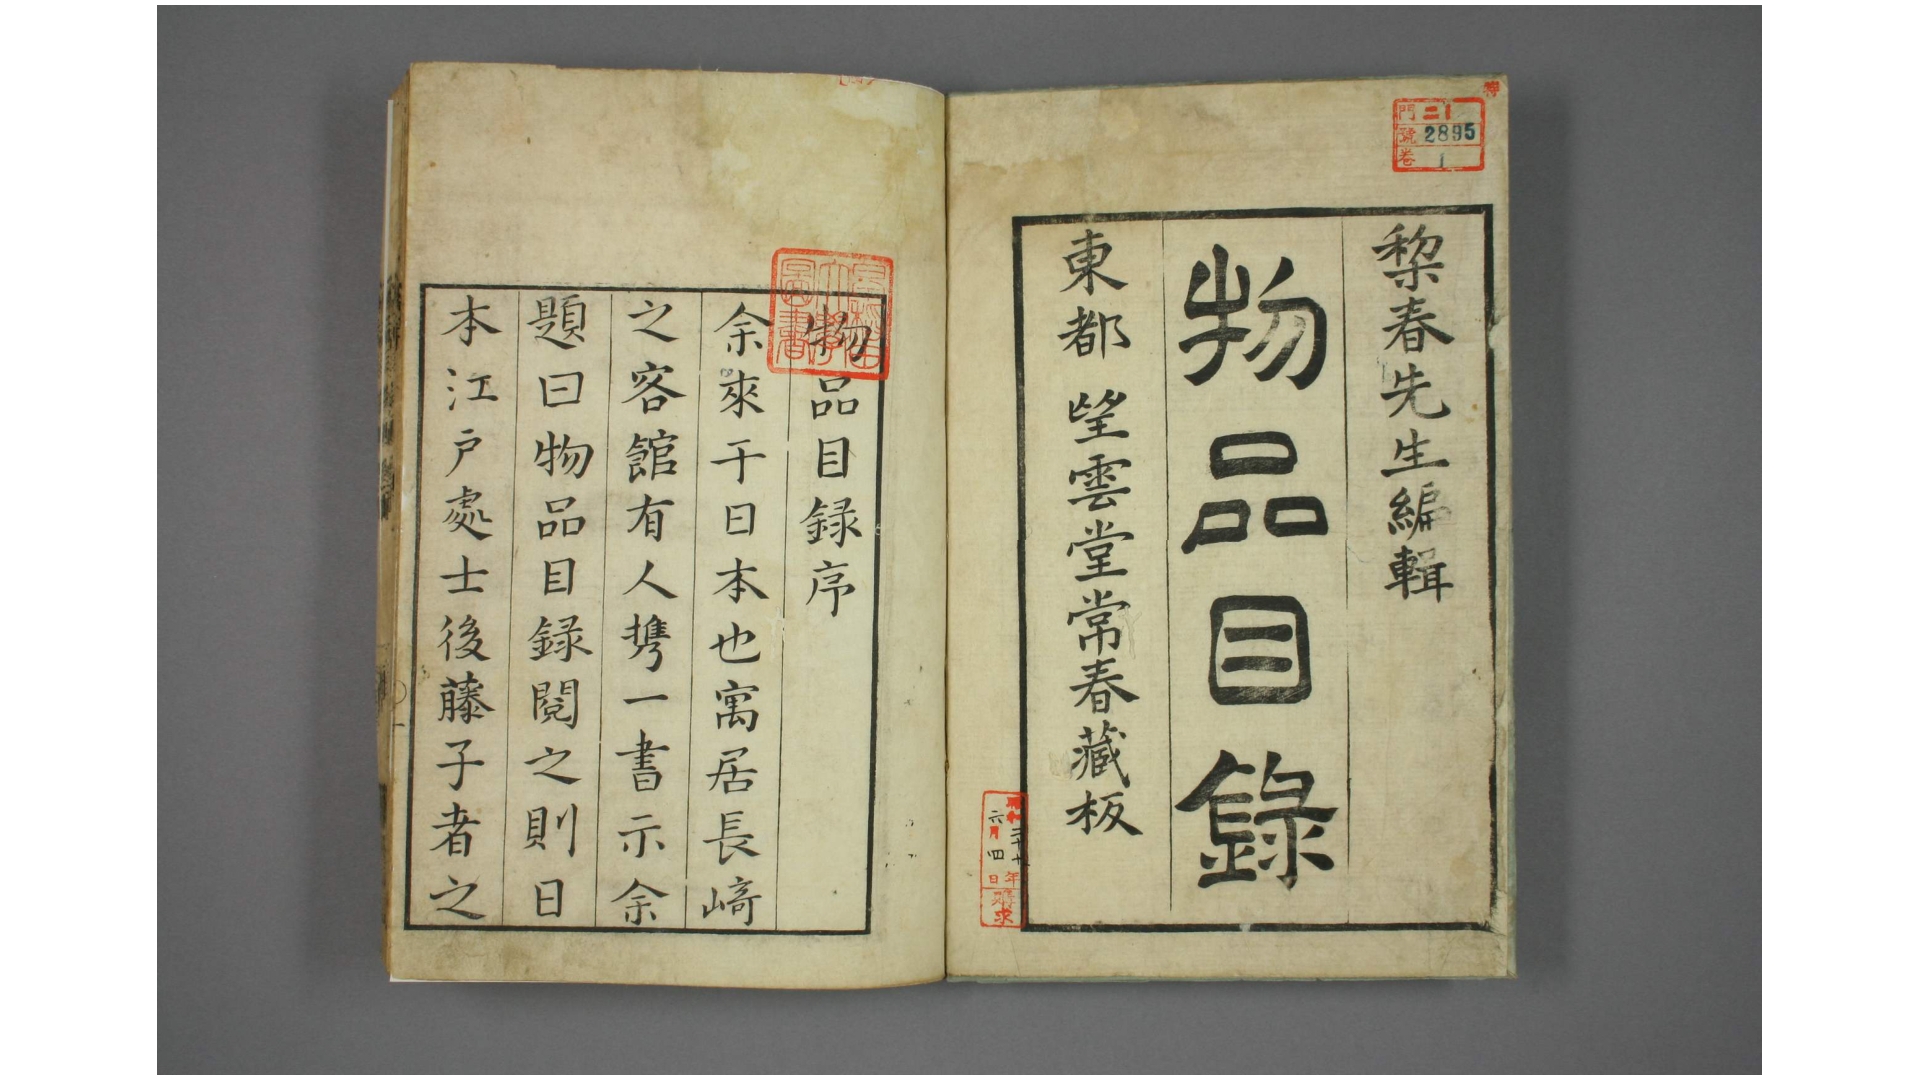 門 二 1
號 2895
卷 1
棃春先生編輯
物品目錄
東都 望雲堂常春藏板
昭和二十七年
六月四日
購求
物品目録序
余來于日本也寓居長﨑
之客館有人携一書示余
題曰物品目録閲之則日
本江戸處士後藤子者之